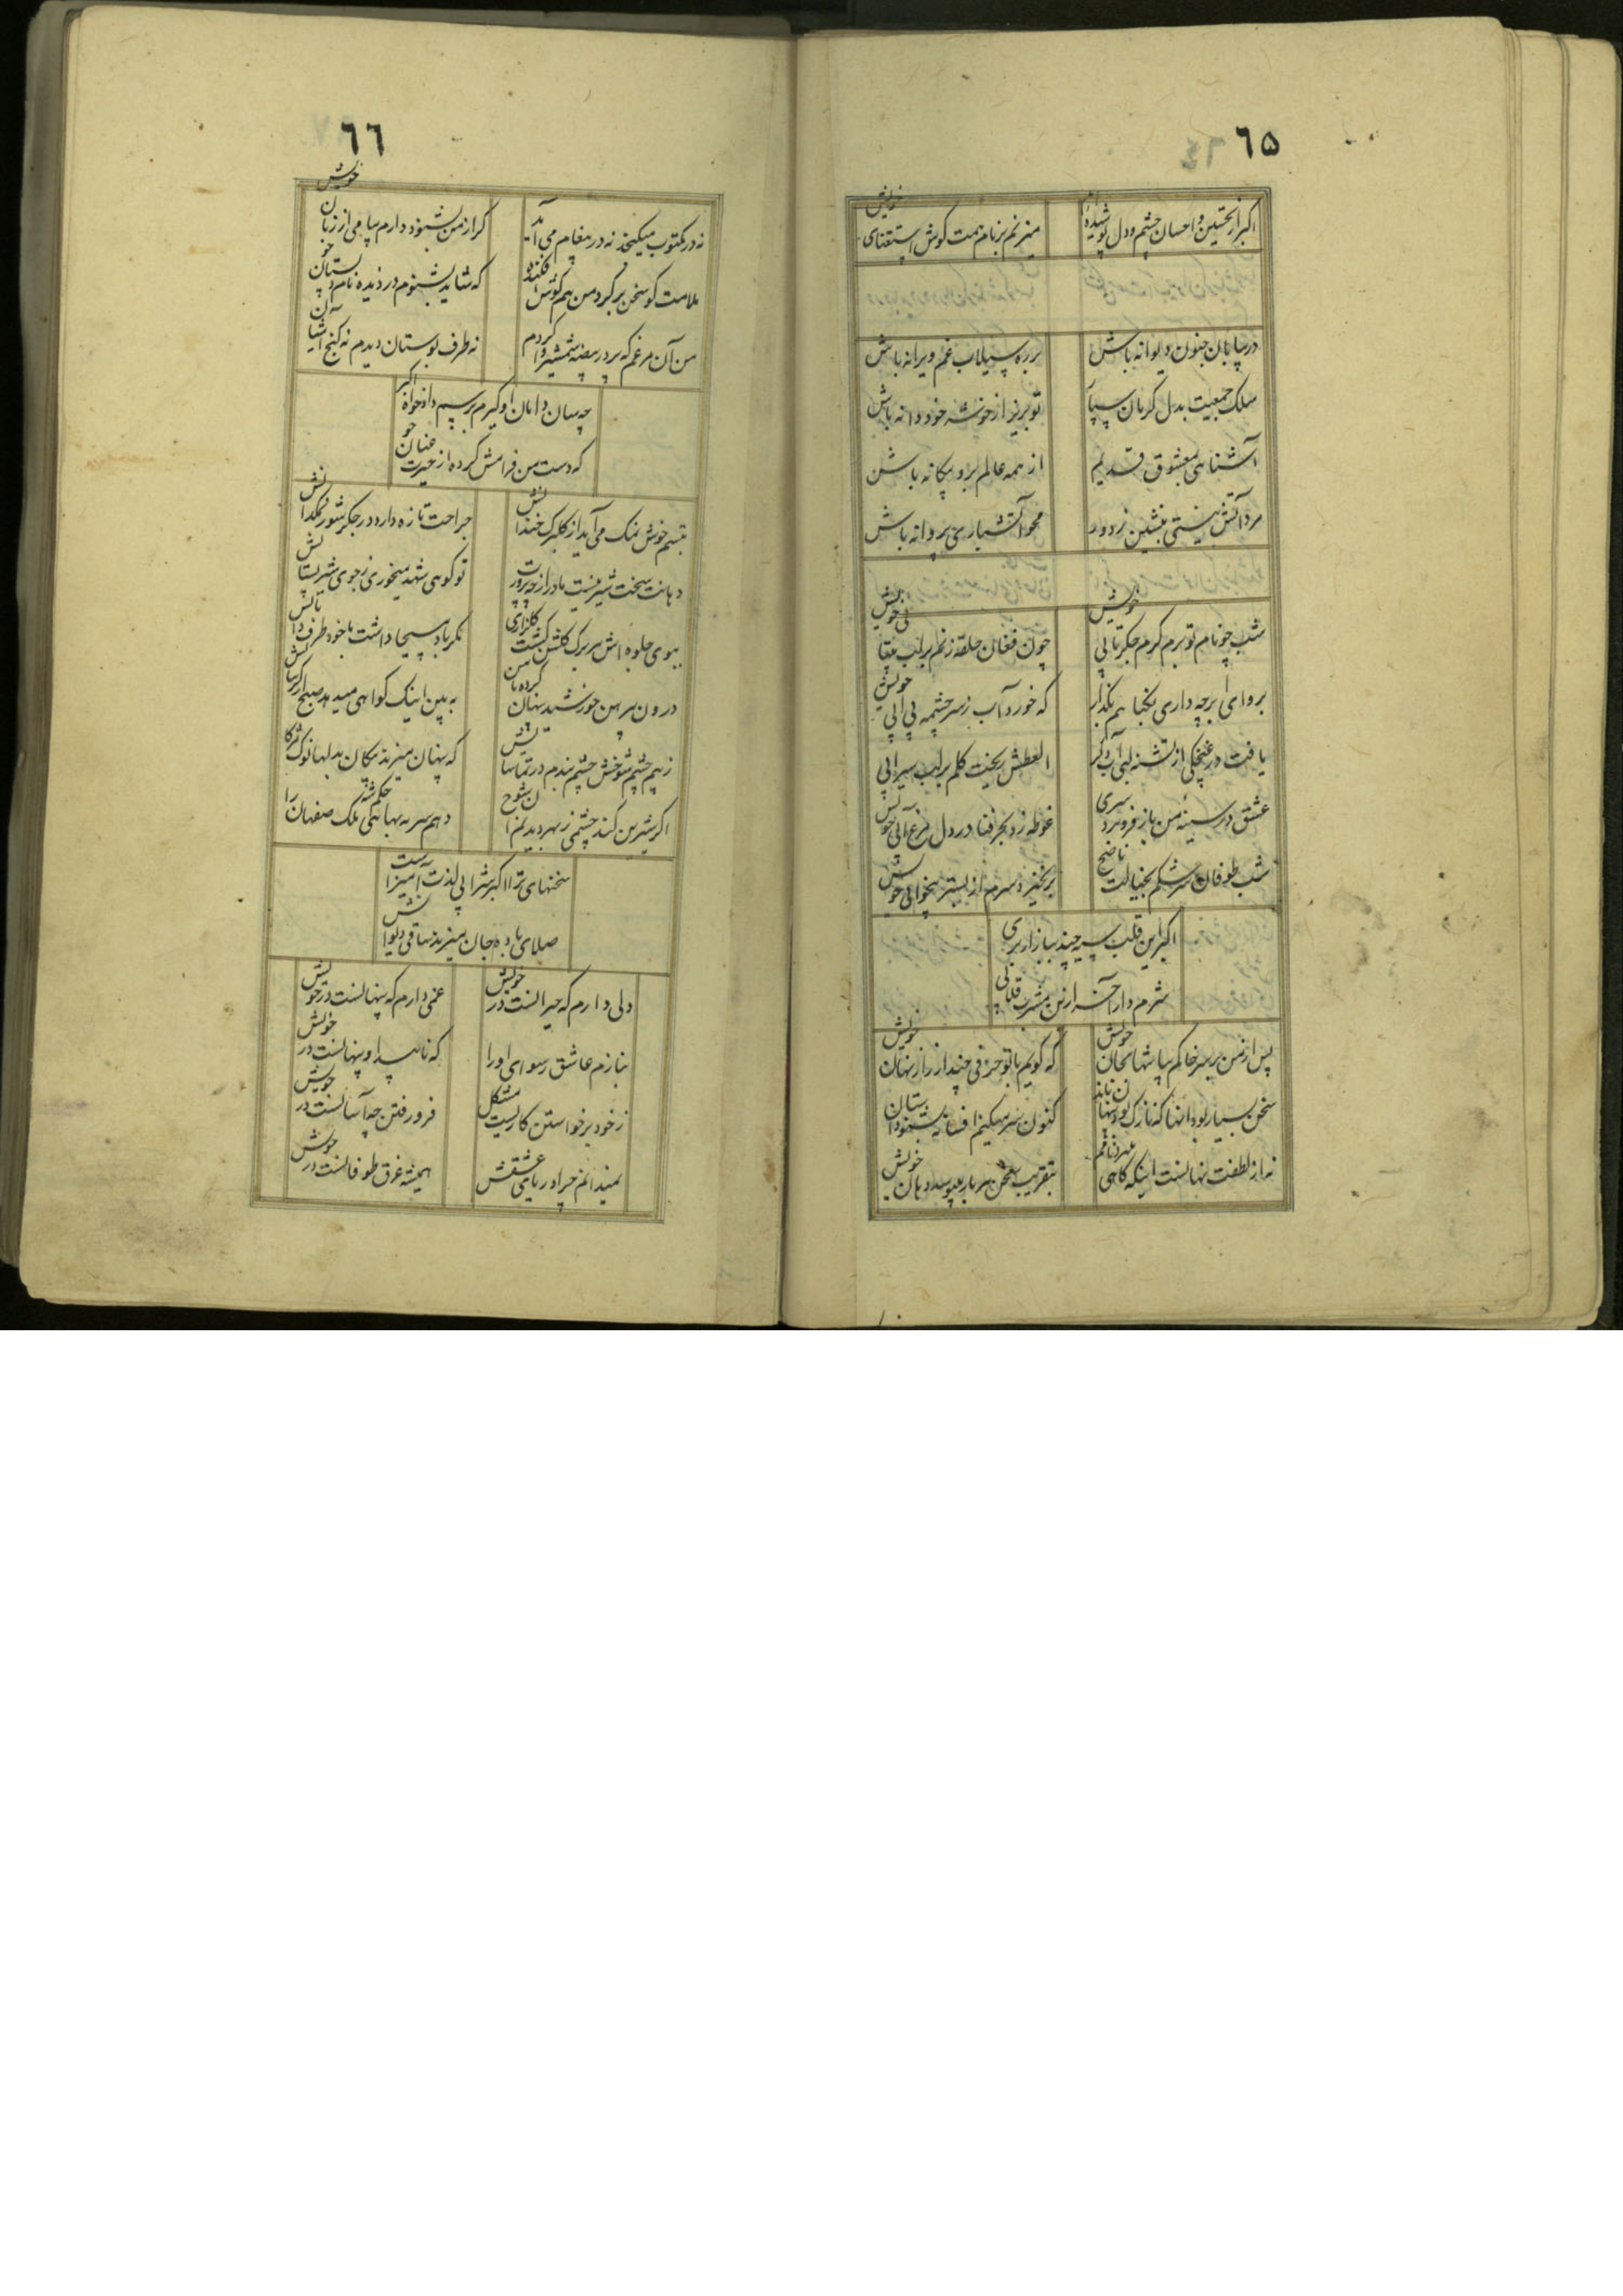 ٦٥
اکبر از تحسین و احسان چشم و دل پوشیده‌ام
میزنم بر نام همت کوس استغنای خویش
در بیابان جنون دیوانه باش
بر ره سیلاب غم ویرانه باش
سلک جمعیت بدل کرمان سپار
تو بریز از خوشه خود دانه باش
آشنا هی بمعشوق قدیم
از همه عالم برو بیکانه باش
مرد آتش نیستی بنشین ز دور
محو آتشباری پروانه باش
شب چو نام تو برم کرم جکر تابی خویش
چون فغان حلقه زنم بر لب بیتابی خویش
برو ای ابر چه داری بکیاهم بکذار
که خورد آب ز سر چشمه بی آبی خویش
یافت در غنچکی از تشنه لبی آب دکر
العطش ریخت کلم بر لب سیرابی
عشق در سینه من باز فرو برد سری
غوطه زد بحر فنا در دل
شب طوفان سرشکم بخیالت ناصح
بر نخیزد سرم از بستر بیخوابی خویش
اکبر این قلب سیه چند ببازار بری
شرم دار آخر ازین مشرب قلابی
پس از من بر سر خاکم بیا
که کویم با تو حرفی چند از راز نهان خویش
سخن بسیار بود انها که نازک بود
کنون سر میکنم افسانه
نه از لطفت نهانست اینکه کاهی
بتقریب سخن هر بار میبوسد دهان خویش
٦٦
نه در مکتوب میکنجد نه در پیغام می آید
کر از من بشنود دارم پیامی از زبان خویش
ملامت کو سخن بر کرد من هم کوش افکنده
که شاید بشنوم دزدیده نام
من آن مرغم که پر در بیضه شمشیر وا کردم
نه طرف بوستان دیدم نه کنج آشیان
چه سان دامان او کیرم برسم دادخواه اکبر
که دست من فرامش کرده از حیرت عنان خو
تبسم خوش نمک می آید از کلبرک خندانش
جراحت تازه دارد در جکر شور نمکدانش
دهانت سخت شیرینست مادر از چه پرورت
تو کوهی شهد میخوری ز جوی شیر پستانش
ببوی جلوه اش هر برک کلشن کشت کلزاری
مکر باد مسیحا داشت با خود طرف دامانش
درون پیرهن خورشید پنهان کرده
به بین اینک کواهی میدهد صبح از کریبانش
ز بیم چشم شوخش چشم بندم در تماشایش
که پنهان میزند پیکان بدلها نوک مژکا
اکر شیرین کند چشمی ز بهر دیدنم آن شوخ
دهم سرمه بهای
سخنهای ترا اکبر شرابی لذت آمیز است
صلای باده جان میزند ساقی دیوانش
دلی دارم که حیرانست در خویش
غمی دارم که پنهانست در خویش
بنازم عاشق رسوای او را
که ناپیدا و پنهانست در خویش
ز خود برخواستن کاریست مشکل
فرو رفتن چه آسانست در خویش
نمیدانم چرا دریای عشقش
همیشه غرق طوفانست در خویش